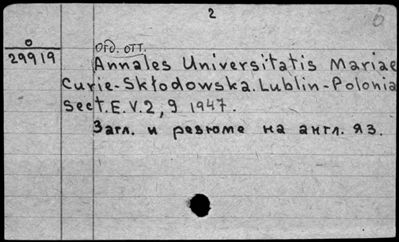 2
б
О
29919
Отд. отт.
Annales Universitatis Mariae
Curie-Skłodowska. Lublin-Polonia
Sect. E. V. 2, 9 1947.
Загл. и резюме на англ. яз.